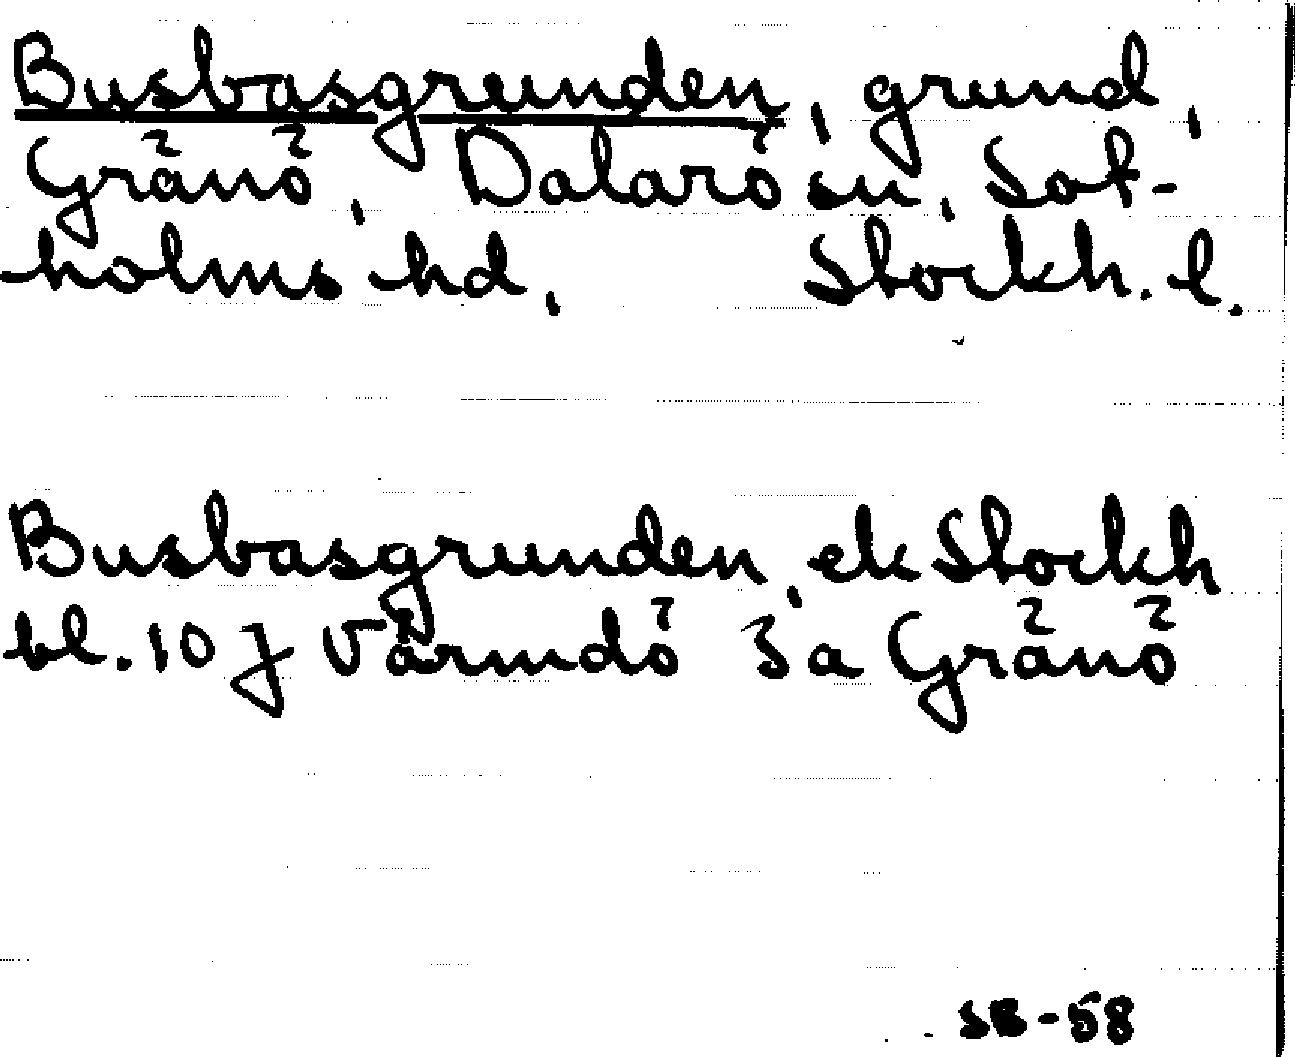 Busbasgrunden, grund,
Gränö, Dalarö sn, Sot-
holms hd, Stockh. l.
Busbasgrunden, ek Stockh
bl. 10 J Värmdö 3 a Gränö
SB-58